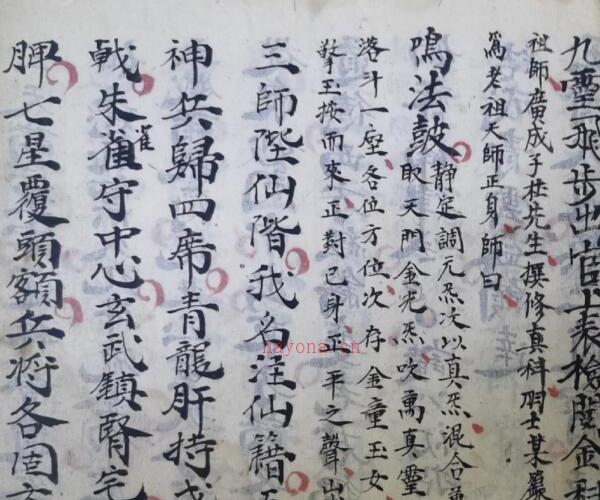 九靈飛步出官上表檢閱金科
祖師廣成子杜先生撰修真科羽士某
為老祖天師正身師曰
鳴法鼓 靜定調元炁次以真炁混合
取天門金光炁吹萬真靈
落斗一座各位方位次存金童玉女
擎玉按而來正對己身正平之聲
三師陛仙階我名注仙籍
神兵歸四席青龍肝持
戟朱雀守中心玄武鎮腎宅
雀
胛七星覆頭額兵將各固
nayona.cn